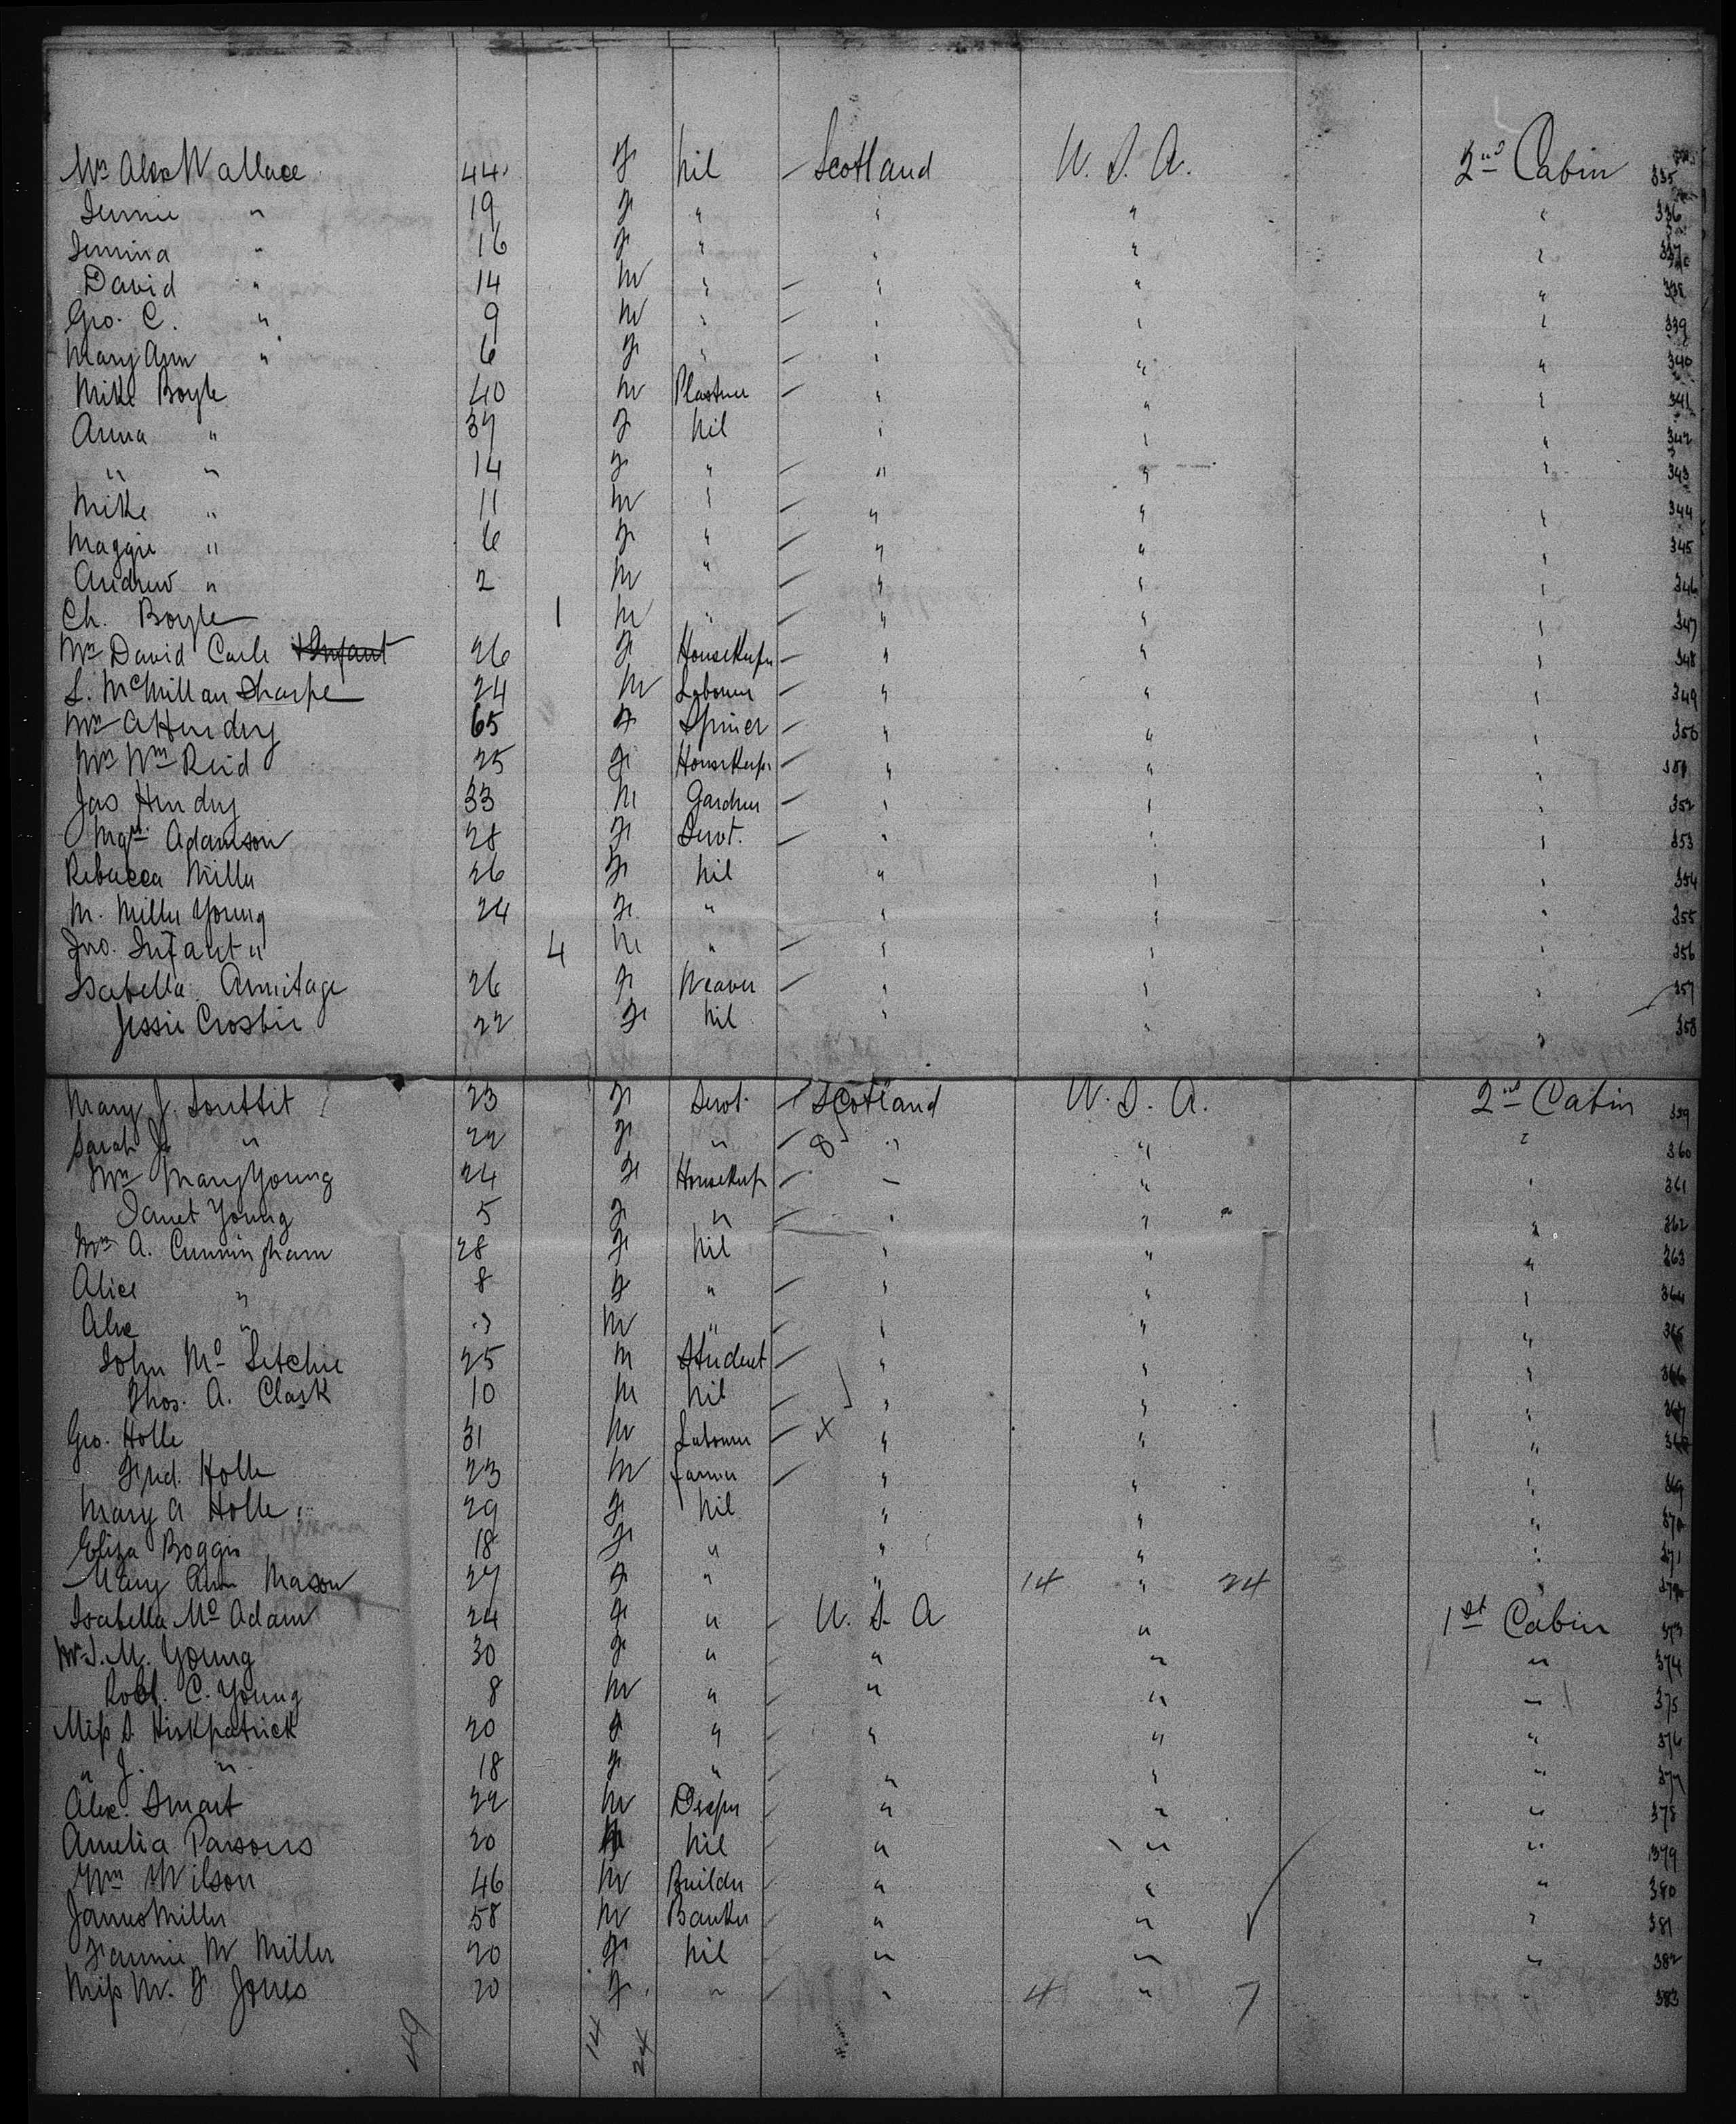 Mrs Alex Wallace 44 F Nil Scotland U. S. A. 2nd Cabin 335
Jennie " 19 F " " " " 336
Jemima " 16 F " " " " 337
David " 14 M " " " " 338
Geo. C. " 9 M " " " " 339
Mary Ann " 6 F " " " " 340
Mike Boyle 40 M Plasterer " " " 341
Anna " 37 F Nil " " " 342
" " 14 F " " " " 343
Mike " 11 M " " " " 344
Maggie " 6 F " " " " 345
Andrew " 2 M " " " " 346
Ch. Boyle 1 M " " " " 347
Mrs David Carle & Infant 26 F Housekeeper " " " 348
S. McMillan Sharpe 24 M Labourer " " " 349
Mrs A Hendry 65 F Spiner " " " 350
Mrs Wm Reid 25 F Housekeeper " " " 351
Jas Hendry 33 M Gardner " " " 352
Mgt. Adamson 28 F Servt. " " " 353
Rebecca Miller 26 F Nil " " " 354
M. Miller Young 24 F " " " " 355
Jno. Infant " 4 M " " " " 356
Isabella Armitage 26 F Weaver " " " 357
Jessie Crosbie 22 F Nil " " " 358
Mary J. Souttit 23 F Servt. Scotland U. S. A. 2nd Cabin 359
Sarah J. " 22 F " " " " 360
Mrs Mary Young 24 F Housekeep " " " 361
Janet Young 5 F " " " " 362
Mrs A. Cunningham 28 F Nil " " " 363
Alice " 8 F " " " " 364
Alex " 3 M " " " " 365
John Mc Letchie 25 M Student " " " 366
Thos. A. Clark 10 M Nil " " " 367
Geo. Holle 31 M Labourer X " " " 368
Fred. Holle 23 M Farmer " " " 369
Mary A Holle 29 F Nil " " " 370
Eliza Boggis 18 F " " " " 371
Mary Ann Mason 27 F " " 14 " 24 " 372
Isabella Mc Adam 24 F " U. S. A " 1st Cabin 373
Mrs J. M. Young 30 F " " " " 374
Robt. C. Young 8 M " " " " 375
Miss S. Kirkpatrick 20 F " " " " 376
" J. " 18 F " " " " 377
Alex. Smart 22 M Draper " " " 378
Amelia Parsons 20 Nil " " " 379
Wm Wilson 46 M Builder " " " 380
James Miller 58 M Banker " " " 381
Fannie M Miller 20 F Nil " " " 382
Miss M. F. Jones 20 F " " 4 " 7 " 383
49 14 24